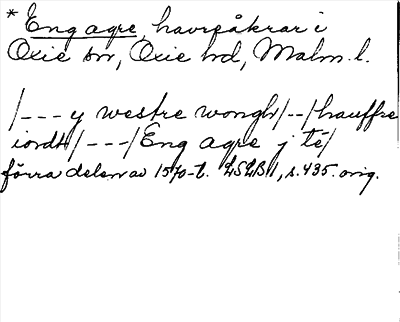 * Eng agre, havreåkrar i
Oxie sn, Oxie hd, Malm. l.
/--- y westre wongh/--/hauffre
iordt/---/Eng agre j té/
förra delen av 1570-t. LSLB 1, s. 435. orig.